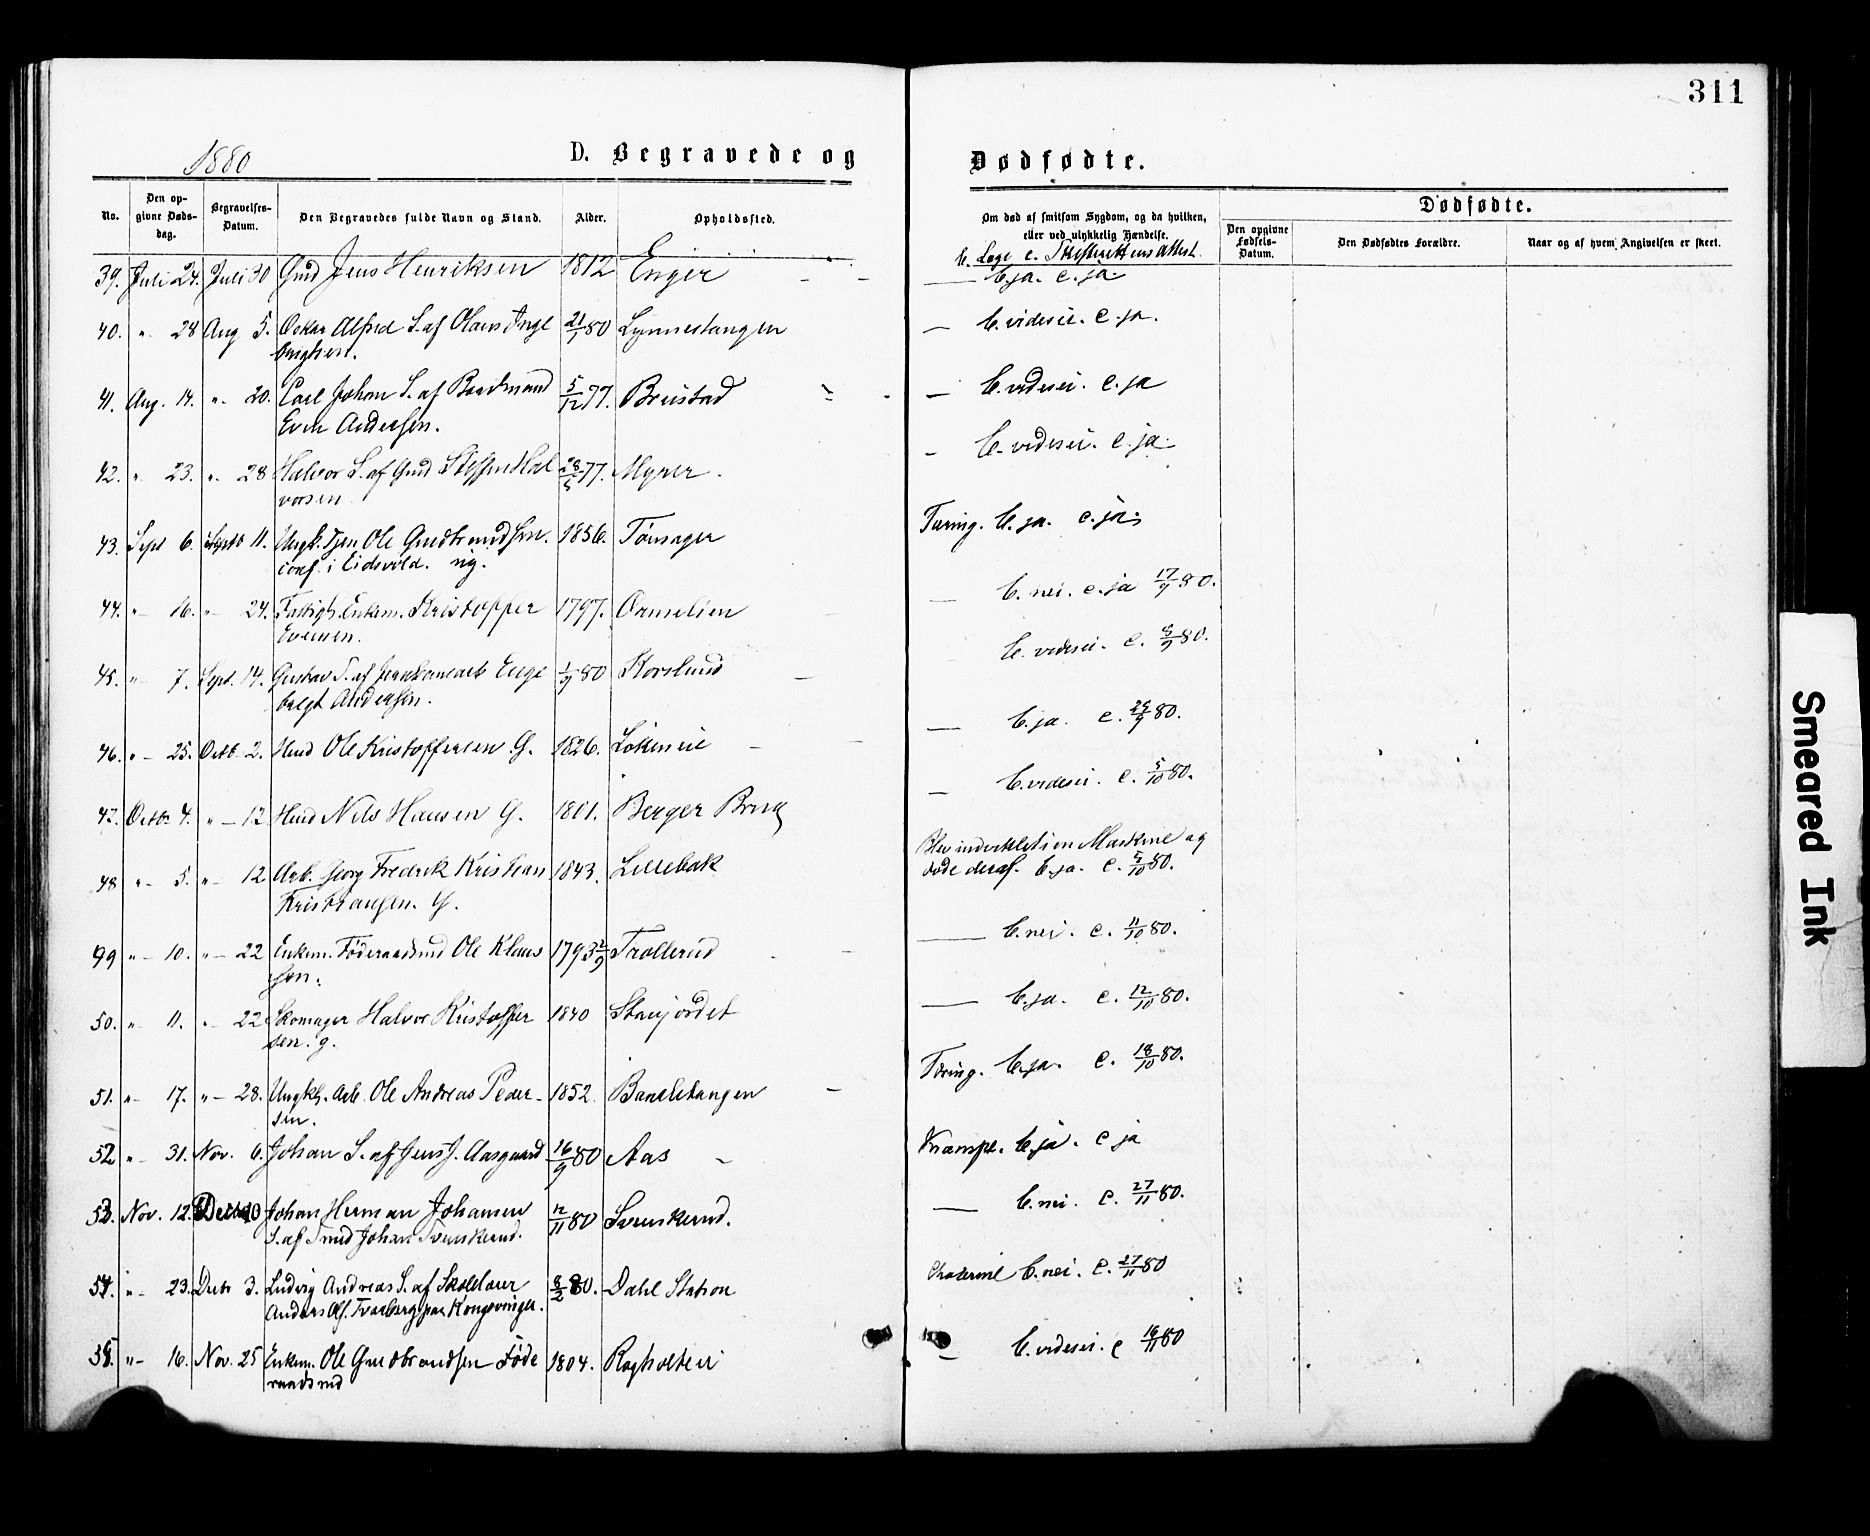 311
1880
D. Begravede og
Dødfødte.
No.
Den op-
givne Døds-
dag.
Begravelses-
Datum.
Den Begravedes fulde Navn og Stand.
Alder.
Opholdssted.
Om død af smitsom Sygdom, og da hvilken,
eller ved ulykkelig Hændelse.
b. Læge c. Skifterettens Attest.
Dødfødte.
Den opgivne
Fødsels-
Datum.
Den Dødfødtes Forældre.
Naar og af hvem Angivelsen er skeet.
39. Juli 24. Juli 30 Gmd Jens Henriksen 1812 Enger — b. ja. c. ja
40. " 28 Aug 5. Oskar Alfred S. af Olaus Inge 21/1 80 Lynnestangen — b. vides ei. c. ja.
brigtsen.
41. Aug. 14. " 20. Carl Johan S. af Baadmand 5/12 77. Breistad — b. vides ei. c. ja
Even Andersen.
42. " 23. " 28 Halvor S. af Gmd Steffen Hal 77. Myrer. - b. vides ei. c. ja.
vorsen
43. Sept 6. Septb 11. Ungk. Tjen Ole Gudbrandsen. 1856. Tømager Tæring. b. ja. c. ja.
conf. i Eidsvold. ug.
44. " 16. " 24. Fattigl. Enkem. Kristoffer 1797. Ornelien — b. nei. c. ja 17/9 80.
Evensen.
45. " 7. Sept. 14. Gustav S. af Jernbanearb Enge 1/9 80 Korslund b. vides ei. c. 8/9 80.
bregt Andersen.
46. " 25. Octb. 2. Hmd Ole Kristoffersen G. 1826. Løkeneie — b. ja. c. 29/9 80.
47. Octbr 4. " 12 Hmd Nils Hansen G. 1801. Berger Brug — b. vides ei. c. 5/10 80.
48 " 5. " 12 Arb. Georg Fredrik Kristian 1843. Lillebæk Blev indviklet i en Maskine og
Kristiansen. G. døde deraf. b. ja. c. 5/10 80.
49 " 10. " 22 Enkem. Føderaadsmd Ole Klaus 1793 Trøllerud — b. nei. c. 11/10 80.
sen.
50. " 11. " 22 Skomager Halvor Kristoffer 1840 Stavjordet — b. ja. c. 12/10 80.
sen. g.
51. " 17. " 28. Ungk. Arb. Ole Andreas Peder- 1852. Bandetangen Tæring. b. ja. c. 18/10 80.
sen.
52 " 31. Nov. 6. Johan S. af Jens J. Aasgaard 16/9 80 Aas Krampe. b. ja. c ja
53. Nov. 12. Decbr 10 Johan Herman Johansen 12/11 80 Svenskerud. — b. nei. c. 27/11 80.
S. af Gmd Johan Svenskerud.
54. " 23. Decbr 3. Ludvig Andreas S. af Skolelærer 8/2 80. Dahl Station b. nei. c. 27/11 80
Anders Ol. Tvæberg paa Kongsvinger.
55. " 16. Nov. 25 Enkem. Ole Gudbrandsen Føde 1804. Rogholtei — b. vides ei. c 16/11 80
raadsmd
Smeared Ink